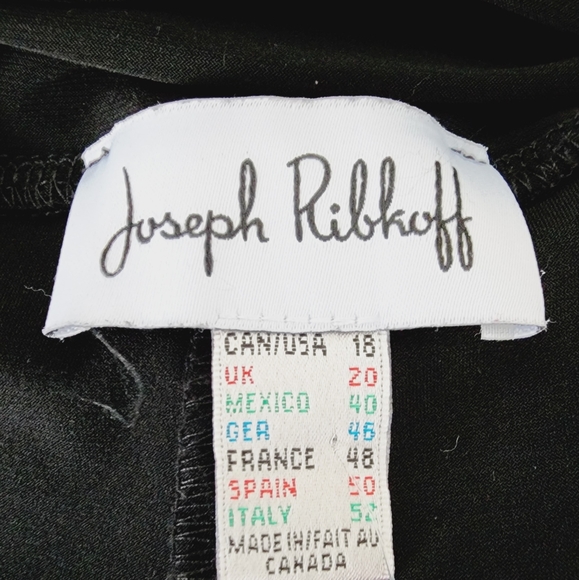 Joseph Ribkoff
CAN/USA 18
UK 20
MEXICO 40
GER 46
FRANCE 48
SPAIN 50
ITALY 52
MADE IN/FAIT AU
CANADA